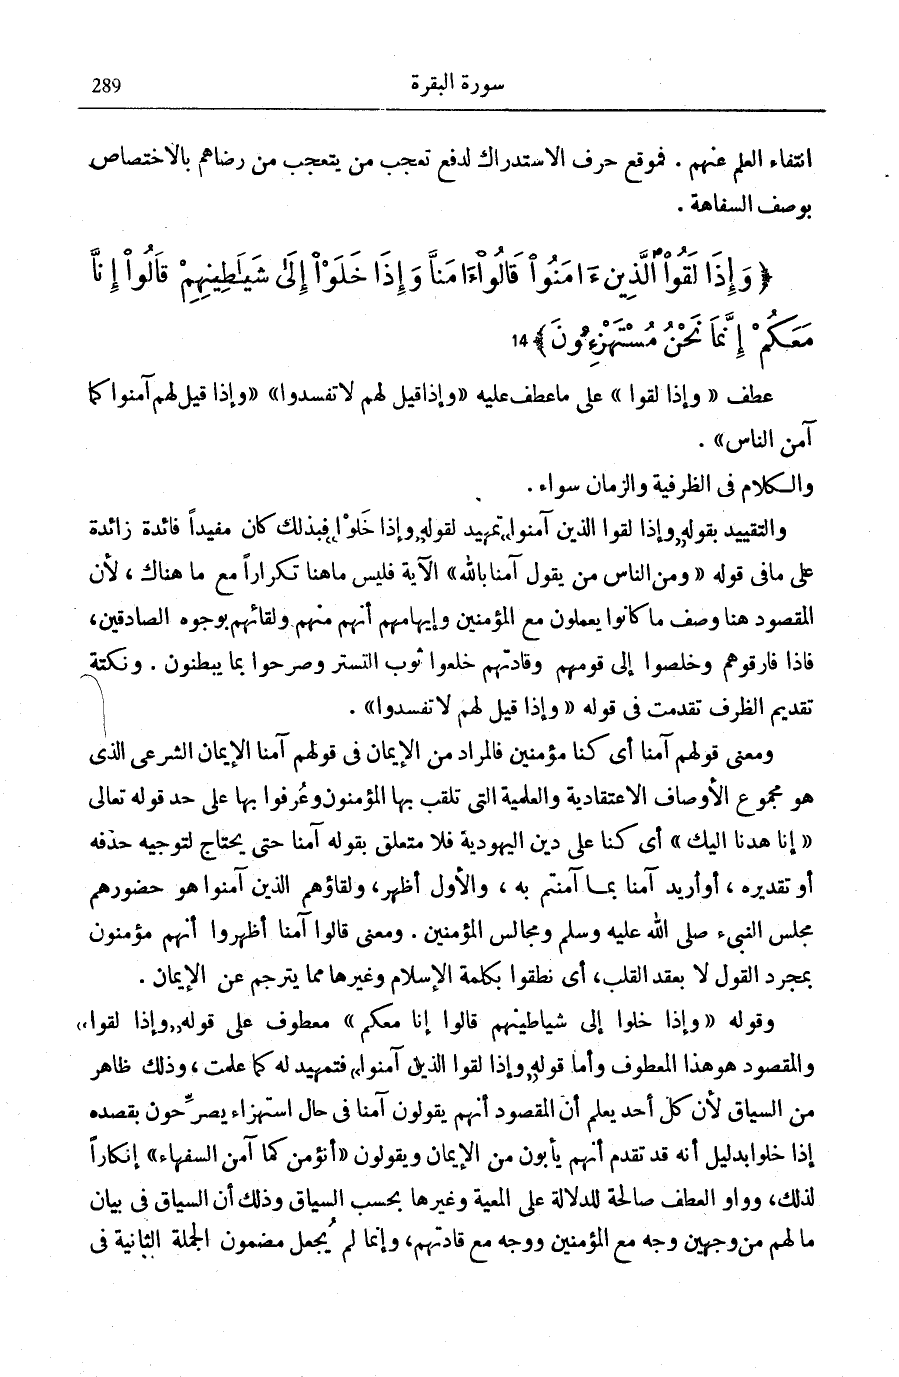 سورة البقرة 289
انتفاء العلم عنهم . فموقع حرف الاستدراك لدفع تعجب من يتعجب من رضاهم بالاختصاص
بوصف السفاهة .
﴿ وَإِذَا لَقُواْ ٱلَّذِينَ ءَامَنُواْ قَالُواْ ءَامَنَّا وَإِذَا خَلَوْاْ إِلَىٰ شَيَٰطِينِهِمْ قَالُواْ إِنَّا
مَعَكُمْ إِنَّمَا نَحْنُ مُسْتَهْزِءُونَ ﴾ 14
عطف « وإذا لقوا » على ما عطف عليه «وإذا قيل لهم لا تفسدوا» «وإذا قيل لهم آمنوا كما
آمن الناس» .
والكلام فى الظرفية والزمان سواء .
والتقييد بقوله „وإذا لقوا الذين آمنوا„ تمهيد لقوله „وإذا خَلَوْا„ فبذلك كان مفيداً فائدة زائدة
على مافى قوله « ومن الناس من يقول آمنا بالله» الآية فليس ماهنا تكراراً مع ما هناك ، لأن
المقصود هنا وصف ما كانوا يعملون مع المؤمنين وإيهامهم أنهم منهم ولقائهم بوجوه الصادقين،
فاذا فارقوهم وخلصوا إلى قومهم وقادتهم خلعوا ثوب التستر وصرحوا بما يبطنون . ونكتة
تقديم الظرف تقدمت فى قوله « وإذا قيل لهم لا تفسدوا» .
ومعنى قولهم آمنا أى كنا مؤمنين فالمراد من الإيمان فى قولهم آمنا الإيمان الشرعى الذى
هو مجموع الأوصاف الاعتقادية والعلمية التى تلقب بها المؤمنون وعُرفوا بها على حد قوله تعالى
« إنا هدنا اليك » أى كنا على دين اليهودية فلا متعلق بقوله آمنا حتى يحتاج لتوجيه حذفه
أو تقديره ، أو أريد آمنا بما آمنتم به ، والأول أظهر، ولقاؤهم الذين آمنوا هو حضورهم
مجلس النبىء صلى الله عليه وسلم ومجالس المؤمنين . ومعنى قالوا آمنا أظهروا أنهم مؤمنون
بمجرد القول لا بعقد القلب، أى نطقوا بكلمة الإسلام وغيرها مما يترجم عن الإيمان .
وقوله « وإذا خلوا إلى شياطينهم قالوا إنا معكم » معطوف على قوله „وإذا لقوا„
والمقصود هو هذا المعطوف وأما قوله „وإذا لقوا الذين آمنوا„ فتمهيد له كما علمت ، وذلك ظاهر
من السياق لأن كل أحد يعلم أن المقصود أنهم يقولون آمنا فى حال استهزاء يصرِّحون بقصده
إذا خلوا بدليل أنه قد تقدم أنهم يأبون من الإيمان ويقولون «أنؤمن كما آمن السفهاء» إنكاراً
لذلك، وواو العطف صالحة للدلالة على المعية وغيرها بحسب السياق وذلك أن السياق فى بيان
ما لهم من وجهين وجه مع المؤمنين ووجه مع قادتهم، وإنما لم يُجعل مضمون الجملة الثانية فى